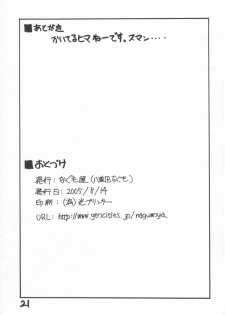 ■あとがき
かいてるヒマねーです。スマン・・・・
■おくづけ
発行：なぐも屋(八重田なぐも)
発行日：2005/8/14
印刷：(有)光プリンター
URL：http://www.geocities.jp/nagumoya
21